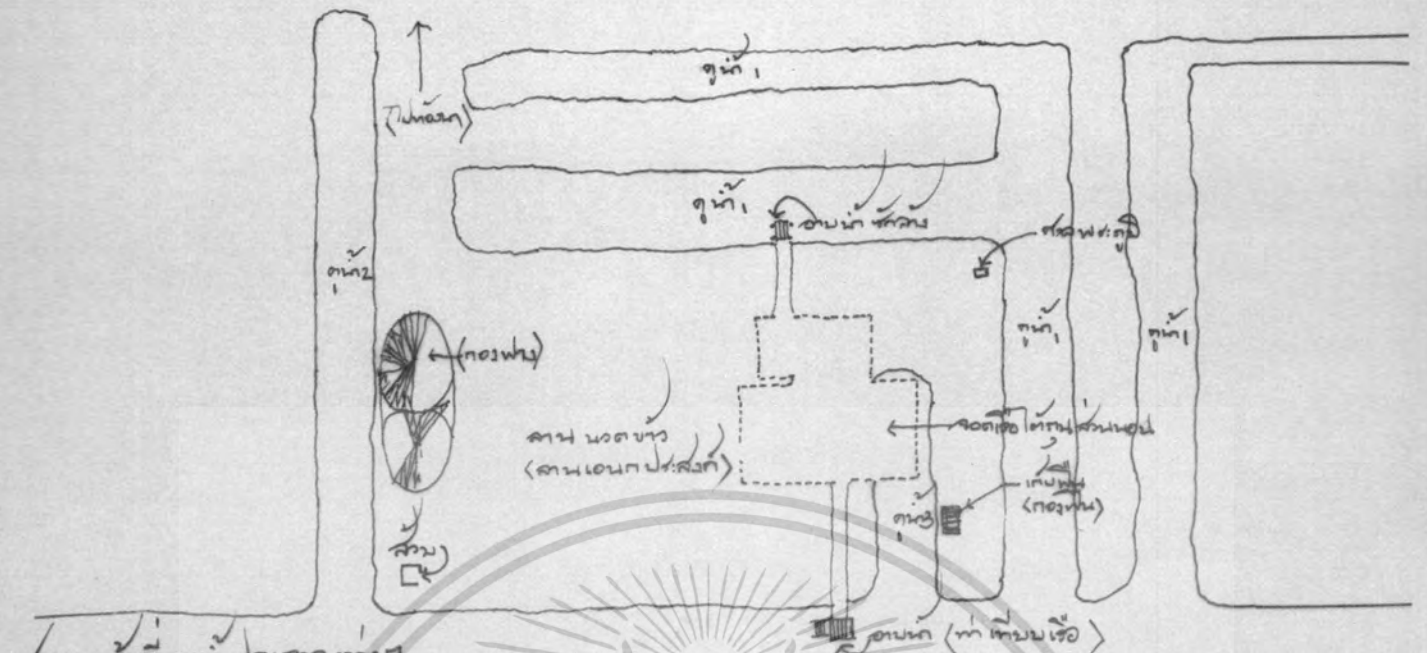 คูน้ำ 1
(ไปท้องนา)
คูน้ำ 1
อาบน้ำ ซักล้าง
ศาลพระภูมิ
คูน้ำ 2
คูน้ำ 1
คูน้ำ 1
(กองฟาง)
ลาน นวดข้าว
(ลานเอนกประสงค์)
จอดเรือ ใต้ถุน ส่วนนอน
เก็บฟืน
(กองฟืน)
คูน้ำ 3
ส้วม
อาบน้ำ (ท่าเทียบเรือ)